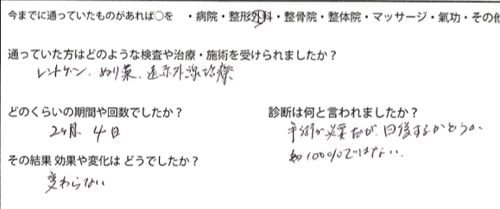 今までに通っていたものがあれば○を ・病院・整形外科・整骨院・整体院・マッサージ・氣功・その他
通っていた方はどのような検査や治療・施術を受けられましたか？
レントゲン、ぬり薬、遠赤外線治療
どのくらいの期間や回数でしたか？
2ヶ月、4日
診断は何と言われましたか？
手術が必要だが、回復するかどうか
100%ではない。
その結果 効果や変化は どうでしたか？
変わらない